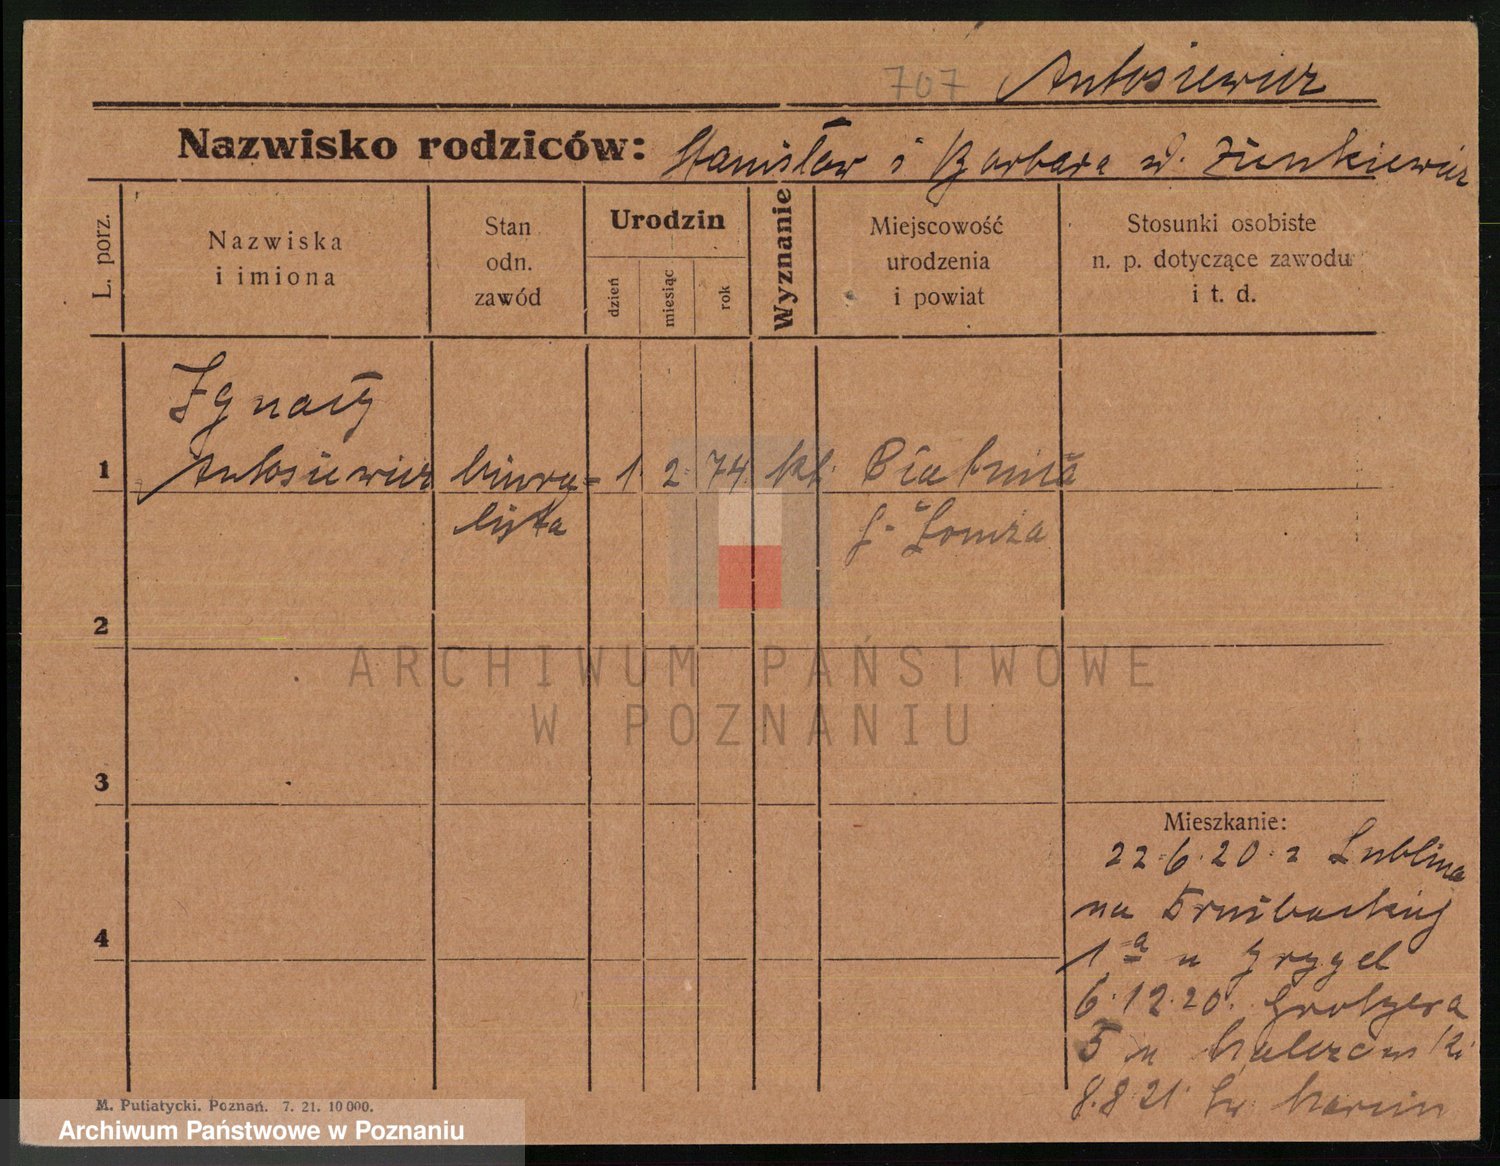 707 Antosiewicz
Nazwisko rodziców: Stanisław i Barbara d. Zienkiewicz
L. porz.
Nazwiska
i imiona
Stan
odn.
zawód
Urodzin
dzień
miesiąc
rok
Wyznanie
Miejscowość
urodzenia
i powiat
Stosunki osobiste
n. p. dotyczące zawodu
i t. d.
Ignacy
1 Antosiewicz biura= 1. 2. 74. kt.
lista Łomża
2
3
4
Mieszkanie:
22.6.20. z Lublina
na
1a u Grygel
6.12.20. Grotgera
5 u
8.8.21. Św. Marcin
M. Putiatycki. Poznań. 7. 21. 10 000.
ARCHIWUM PAŃSTWOWE
W POZNANIU
Archiwum Państwowe w Poznaniu